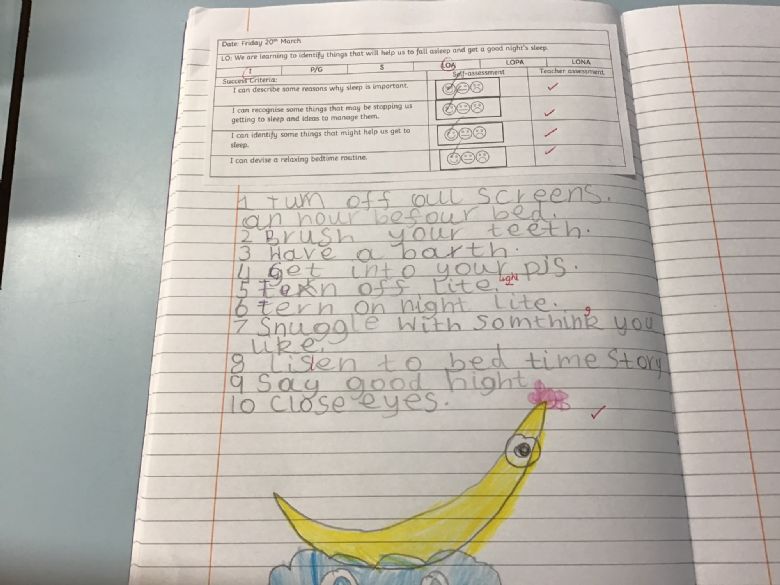 Date: Friday 20th March
LO: We are learning to identify things that will help us to fall asleep and get a good night's sleep.
I P/G S LOA LOPA LONA
Success Criteria: Self-assessment Teacher assessment
I can describe some reasons why sleep is important.
I can recognise some things that may be stopping us
getting to sleep and ideas to manage them.
I can identify some things that might help us get to
sleep.
I can devise a relaxing bedtime routine.
1 turn off all screens.
an hour befour bed.
2 Brush your teeth.
3 Have a barth.
4 Get into your pjs.
light
5 tern off lite.
6 tern on night lite.
g
7 Snuggle with somthink you
like.
8 Lisen to bed time Story
9 Say good night
10 Close eyes.